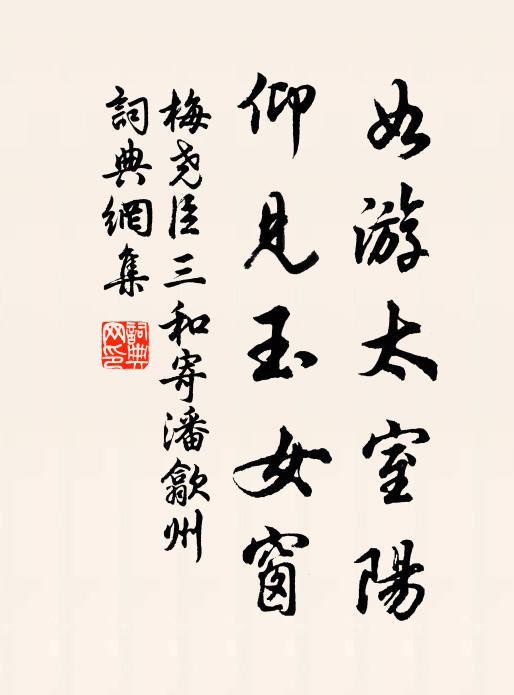 如游太室陽
仰見玉女窗
梅堯臣三和寄潘歙州
詞典網集
詞典网印